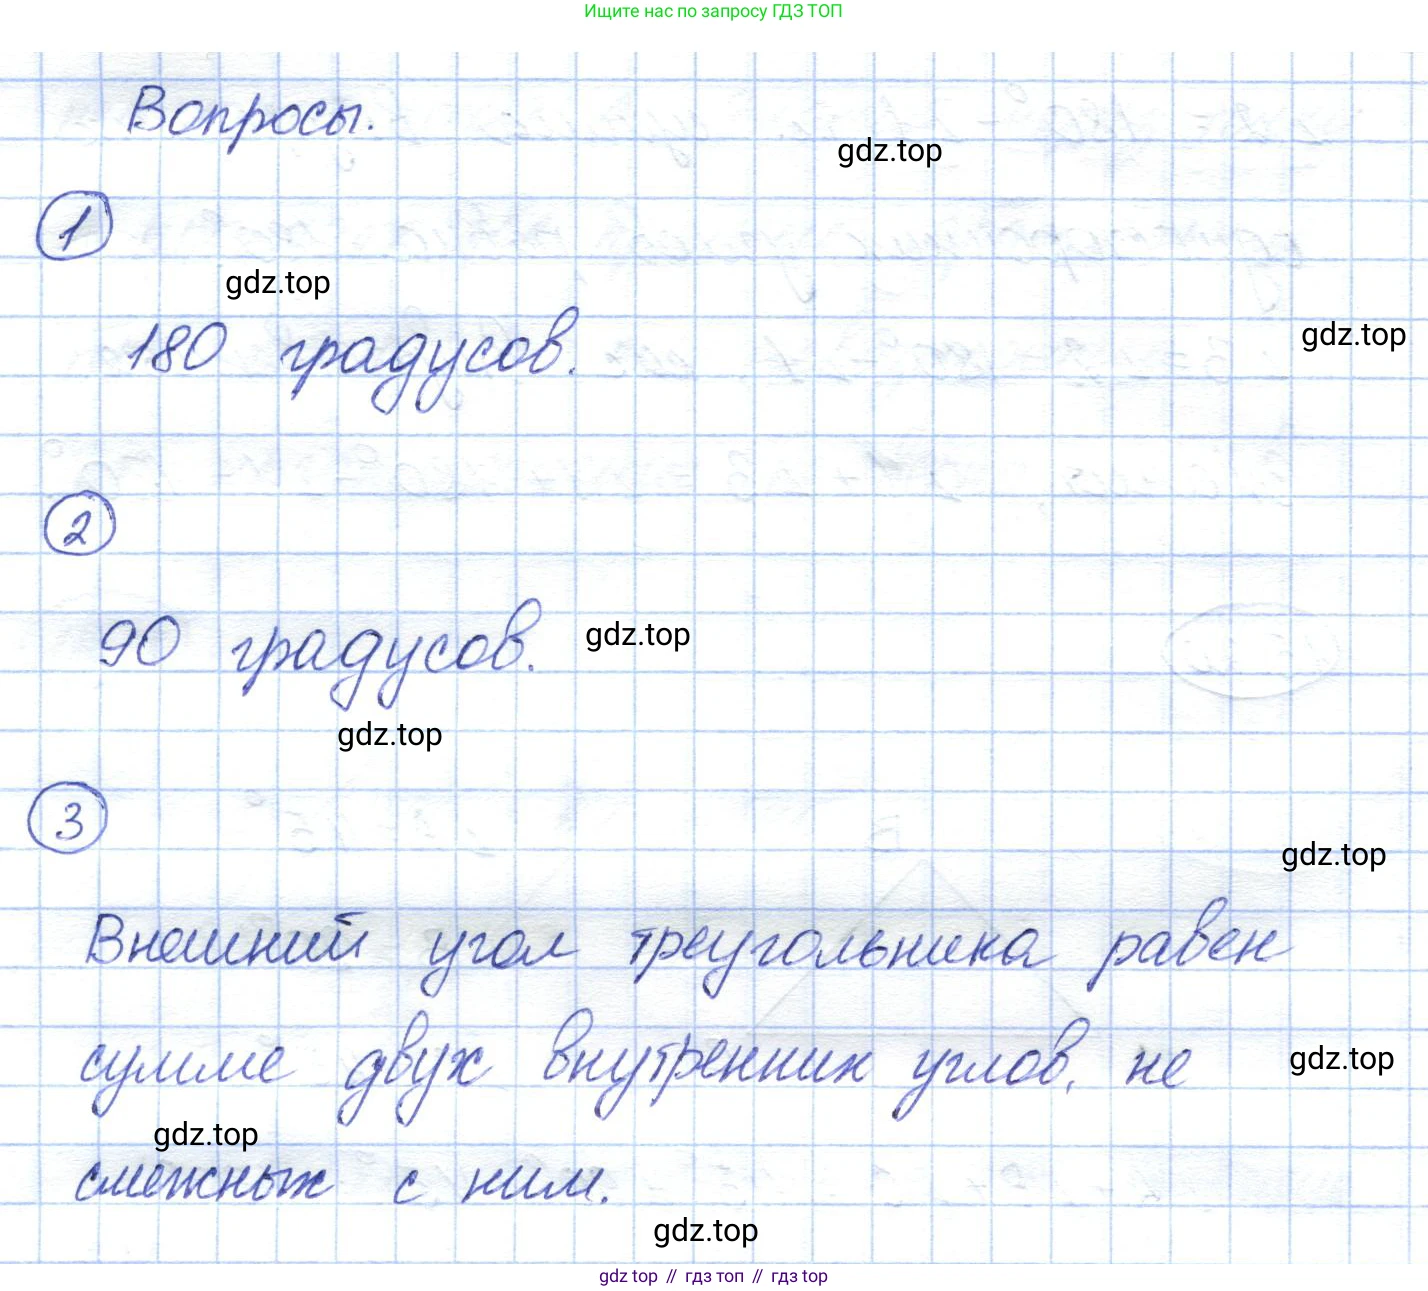 Ищите нас по запросу ГДЗ ТОП
Вопросы.
gdz.top
1
gdz.top
180 градусов.
gdz.top
2
90 градусов.
gdz.top
gdz.top
3
gdz.top
Внешний угол треугольника равен
сумме двух внутренних углов, не
gdz.top
gdz.top
смежных с ним.
gdz.top
gdz top // гдз топ // гдз top